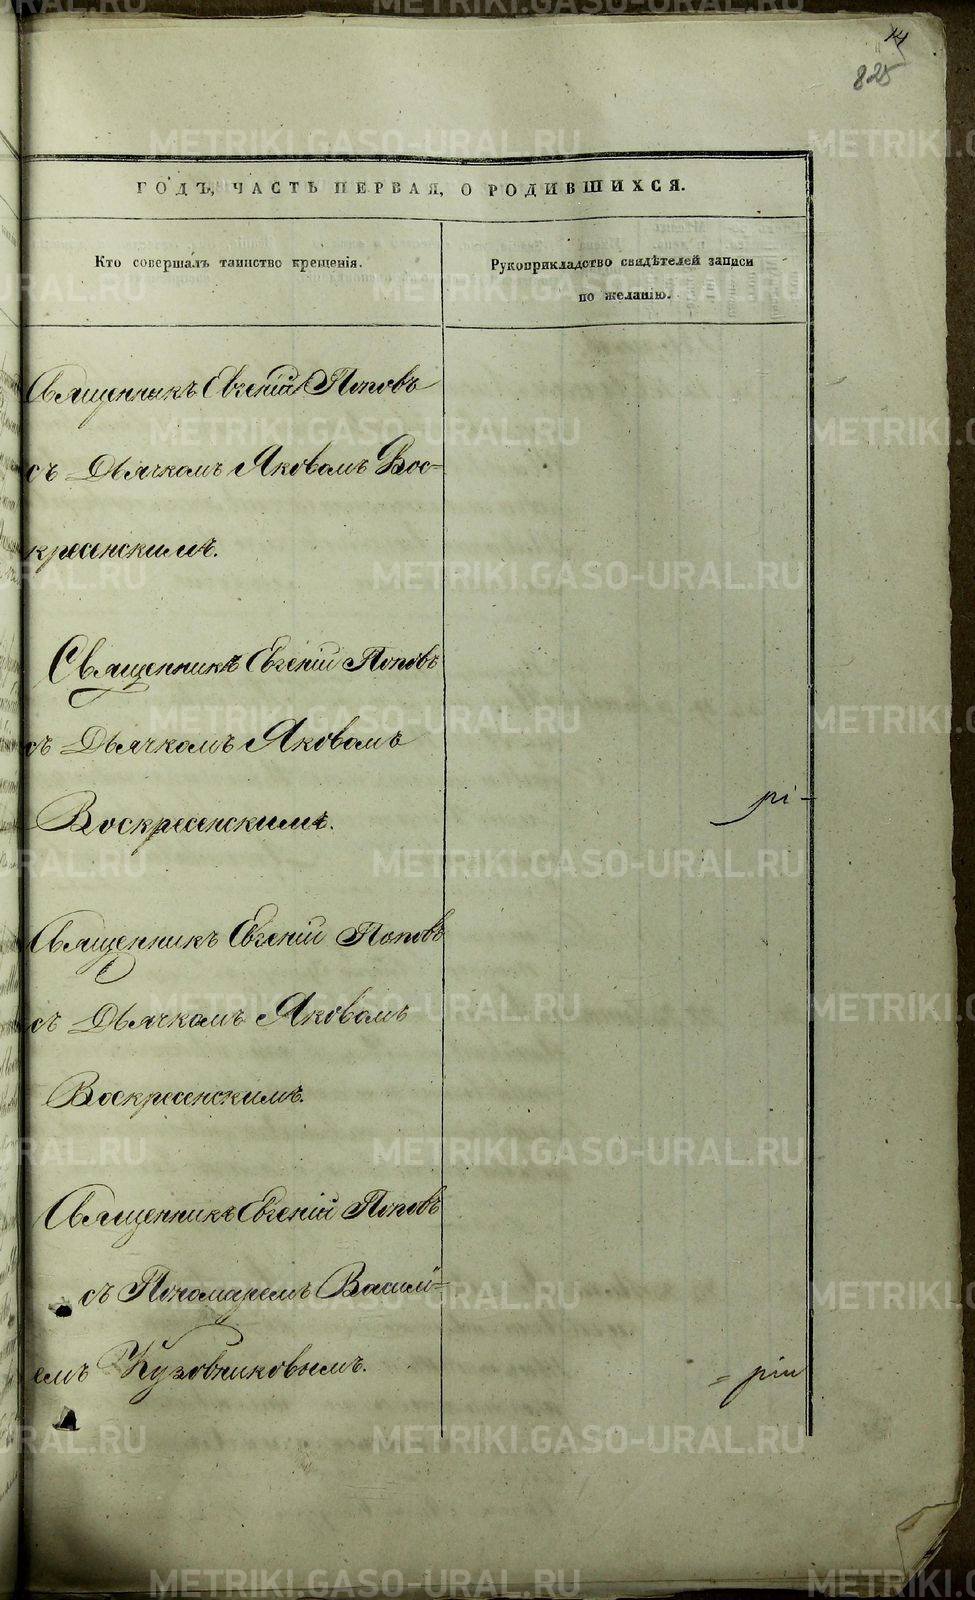 14
825
ГОДЪ, ЧАСТЬ ПЕРВАЯ, О РОДИВШИХСЯ.
Кто совершалъ таинство крещенія.
Рукоприкладство свидѣтелей записи
по желанію.
Священникъ Евгеній Поповъ
съ Дьячкомъ Яковомъ Вос-
кресенскимъ.
Священникъ Евгеній Поповъ
съ Дьячкомъ Яковомъ
Воскресенскимъ.
рі-
Священникъ Евгеній Поповъ
съ Дьячкомъ Яковомъ
Воскресенскимъ.
Священникъ Евгеній Поповъ
съ Пономаремъ Василі-
емъ Кузовниковымъ.
METRIKI.GASO-URAL.RU